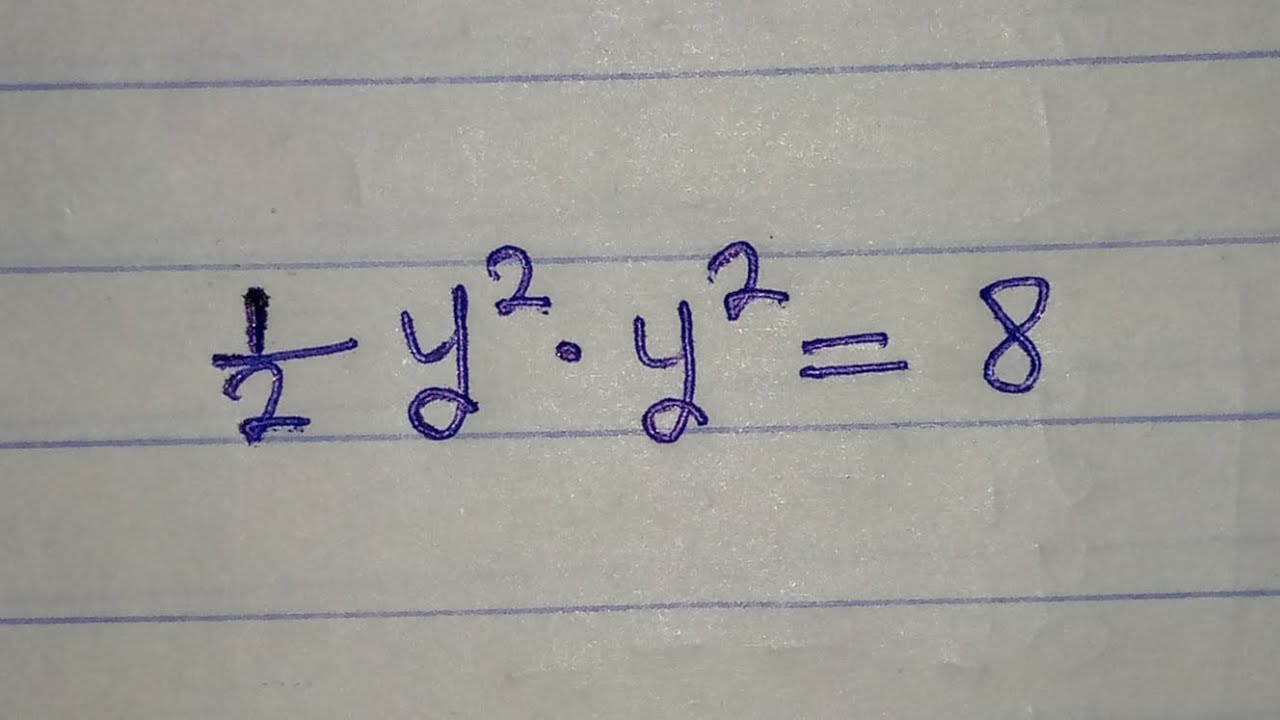 ½ y² · y² = 8